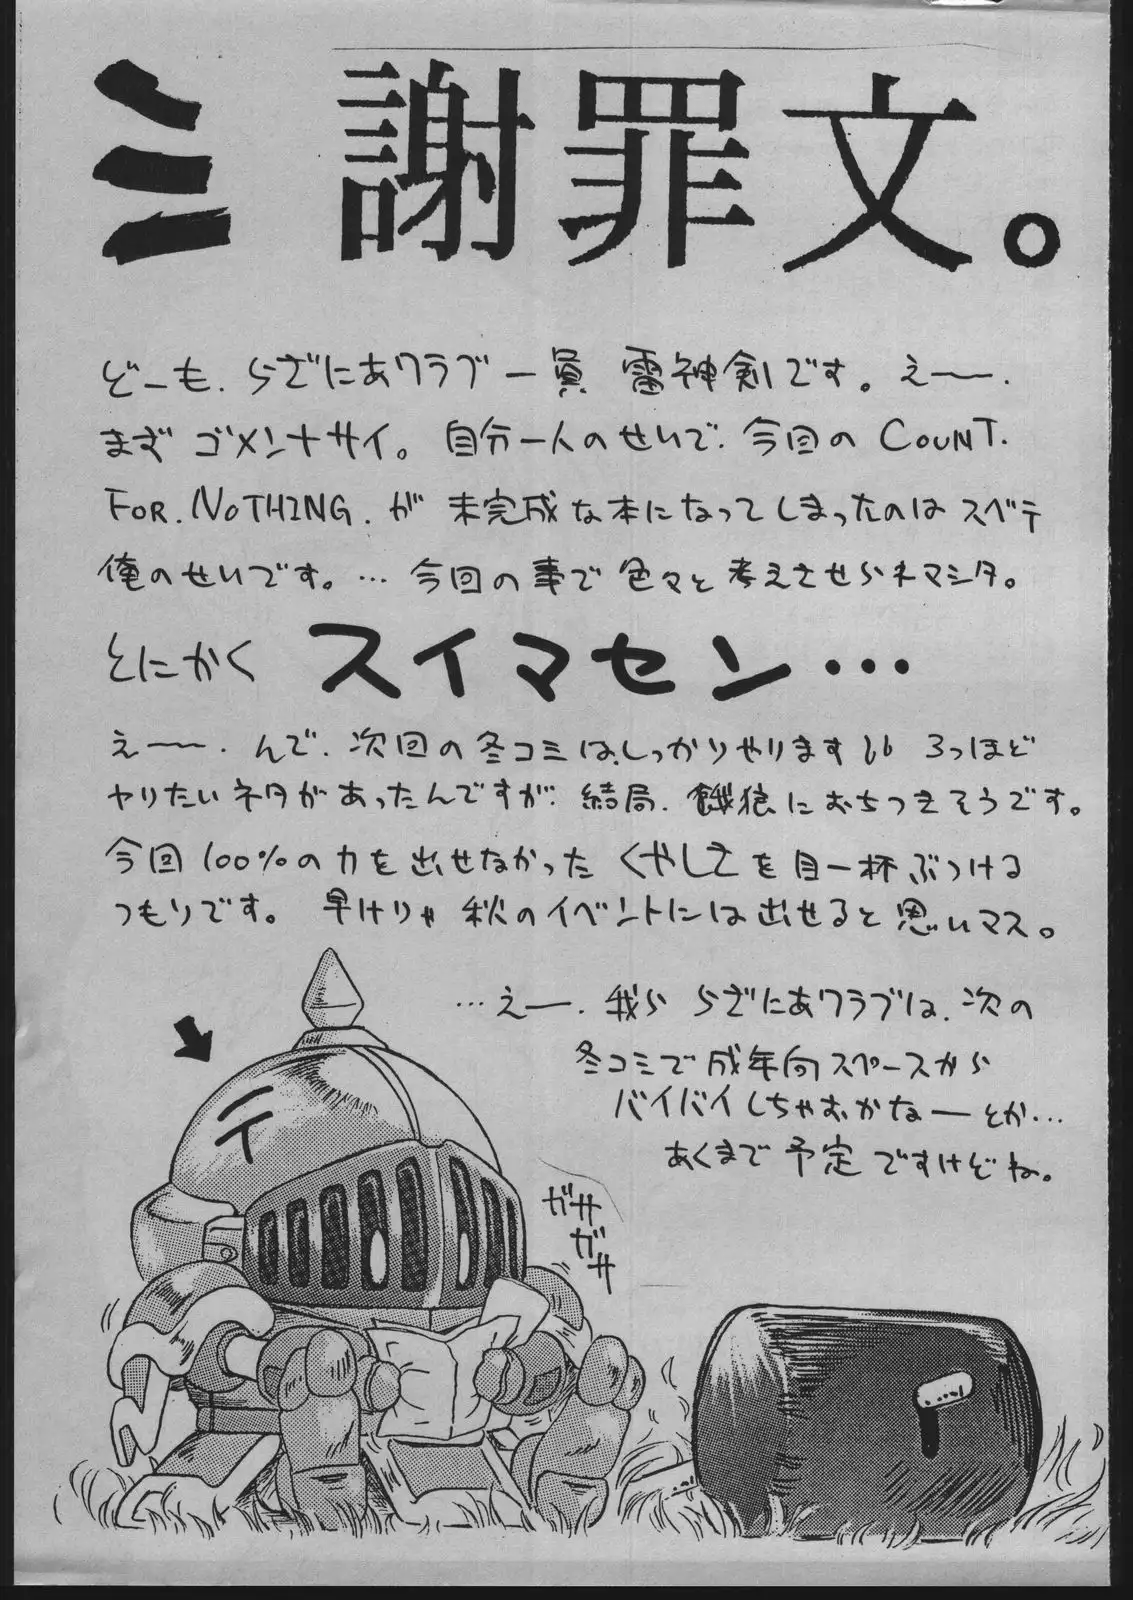 ミ 謝罪文。
どーも、らざにあクラブ一員 雷神剣です。えー〜.
まず ゴメンナサイ。自分一人のせいで、今回の COUNT.
FOR. NOTHING. が 未完成な本になってしまったのは スベテ
俺のせいです。… 今回の事で 色々と 考えさせられマシタ。
とにかく スイマセン…
えー〜. んで、次回の冬コミは、しっかりやります 3つほど
ヤりたいネタがあったんですが、結局、餓狼におちつきそうです。
今回 100%の力を出せなかった くやしさを目一杯ぶつける
つもりです。 早けりゃ 秋のイベントには出せると思いマス。
…えー、我ら らざにあクラブは、次の
冬コミで成年向スペースから
バイバイしちゃおかなーとか…
あくまで 予定 ですけどね。
テ
ガサ
ガサ